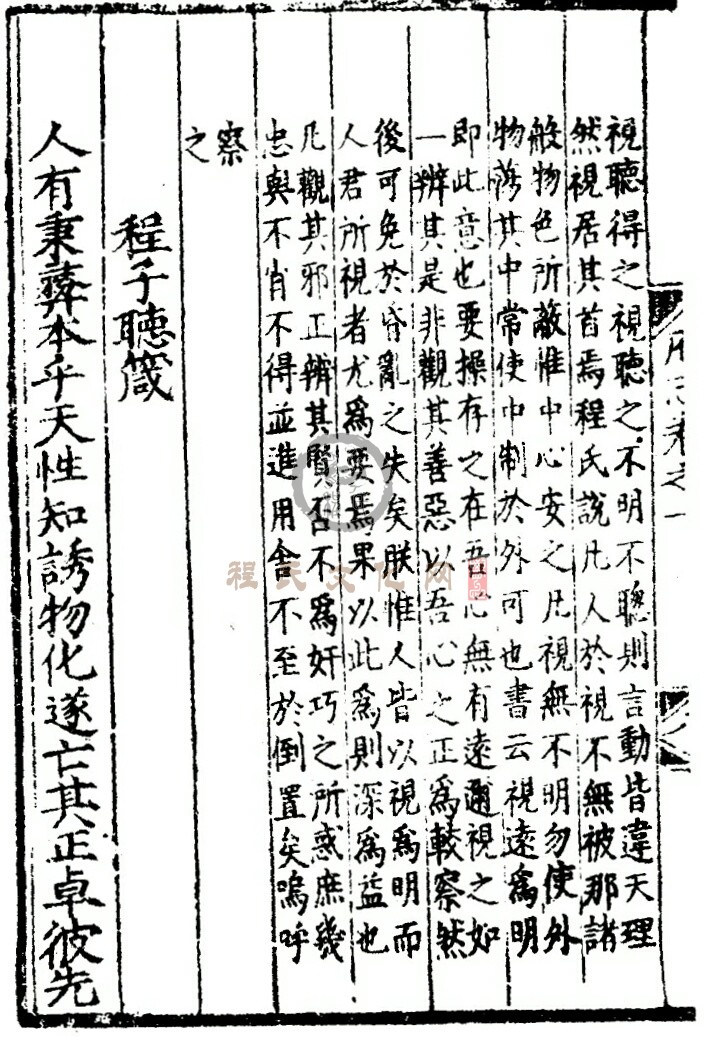 視聽得之視聽之不明不聰則言動皆違天理
然視居其首焉程氏說凡人於視不無被那諸
般物色所蔽惟中心安之凡視無不明勿使外
物蕩其中常使中制於外可也書云視遠爲明
即此意也要操存之在吾心無有遠邇視之如
一辨其是非觀其善惡以吾心之正爲較察然
後可免於昏亂之失矣朕惟人皆以視爲明而
人君所視者尤爲要焉果以此爲則深爲益也
凡觀其邪正辨其賢否不爲奸巧之所惑庶幾
忠與不肖不得並進用舍不至於倒置矣嗚呼
察
之
程子聽箴
人有秉彝本乎天性知誘物化遂亡其正卓彼先
程氏文化网